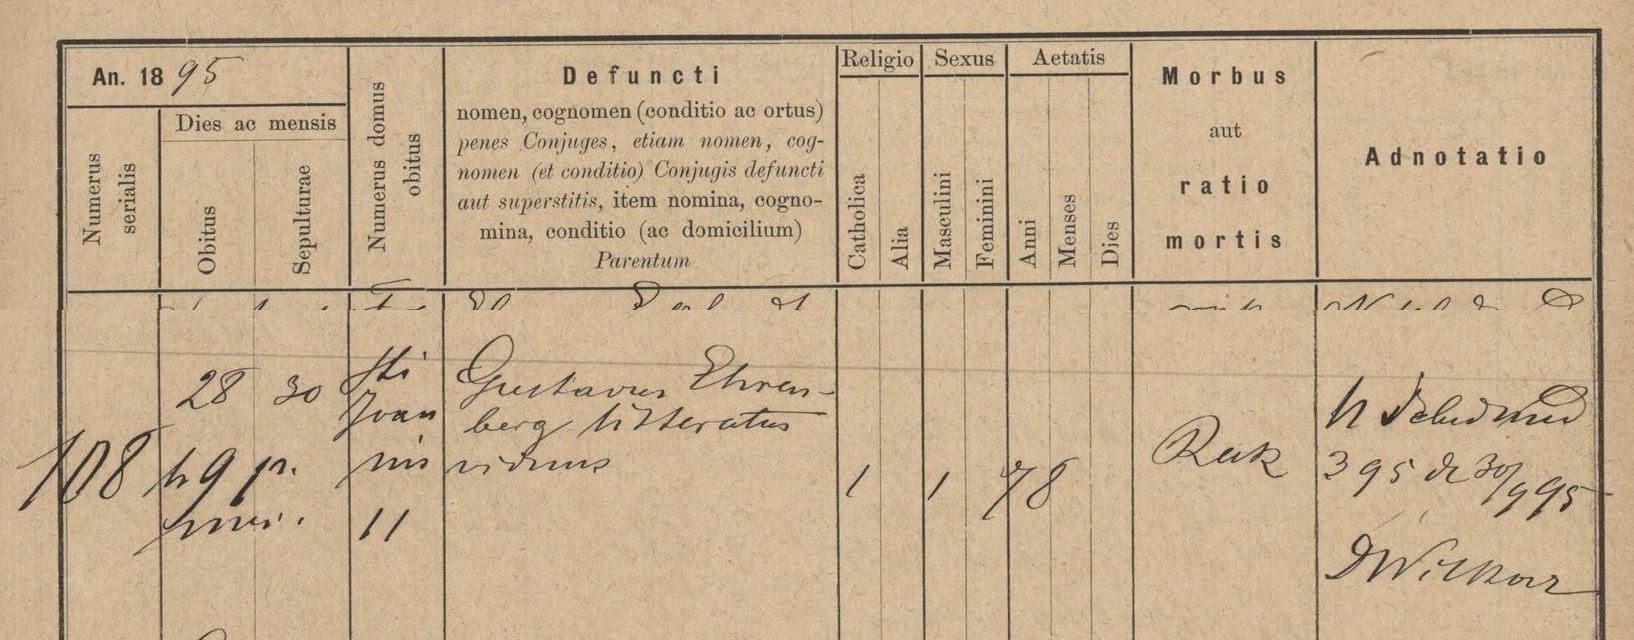 An. 1895
Dies ac mensis
Numerus serialis
Obitus
Sepulturae
Numerus domus obitus
Defuncti
nomen, cognomen (conditio ac ortus)
penes Conjuges, etiam nomen, cog-
nomen (et conditio) Conjugis defuncti
aut superstitis, item nomina, cogno-
mina, conditio (ac domicilium)
Parentum
Religio
Catholica
Alia
Sexus
Masculini
Feminini
Aetatis
Anni
Menses
Dies
Morbus
aut
ratio
mortis
Adnotatio
108
28
h 9 p.
30
Sti
Joan
nis
11
Gustavus Ehren-
berg litteratus
viduus
1
1
78
Rak
395 de 30/9 95